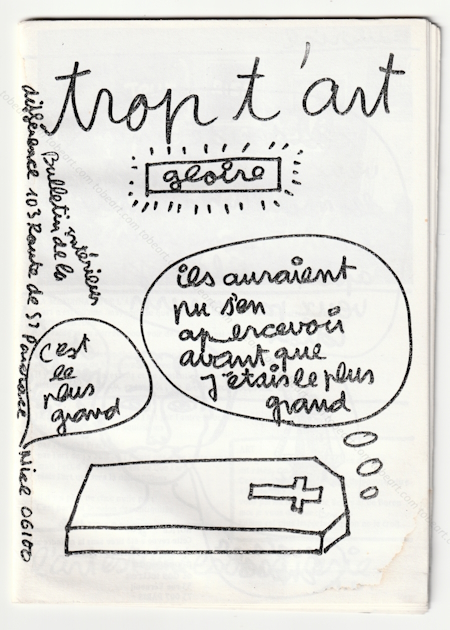 trop t'art
gloire
Bulletin intérieur
de la
différence 103 Route de St Pancrace Nice 06100
ils auraient
pu s'en
apercevoir
avant que
j'étais le plus
grand
c'est
le
plus
grand